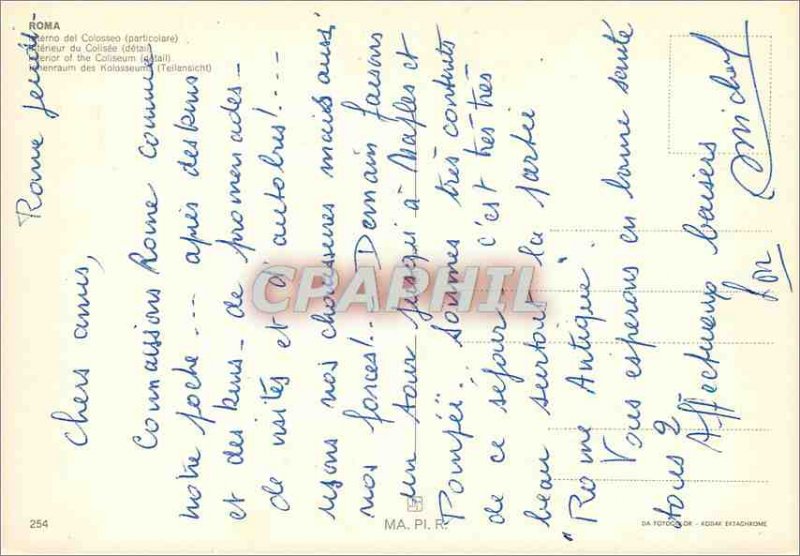 ROMA
Interno del Colosseo (particolare)
Intérieur du Colisée (détail)
Interior of the Coliseum (detail)
Innenraum des Kolosseums (Teilansicht)
Rome jeudi-
Chers amis,
Connaissons Rome comme
notre poche --- après des kms
et des kms - de promenades -
de visites et d'autobus! ---
usons nos chaussures mais aussi
nos forces! -- Demain faisons
un tour jusqu'à Naples et
Pompéi. sommes très contents
de ce séjour - c'est très-très
beau surtout la partie
"Rome Antique"
Vous espérons en bonne santé
tous 2
Affectueux baisers
Michel
CPARHIL
254
MA. PI. R.
DA FOTOCOLOR - KODAK EKTACHROME